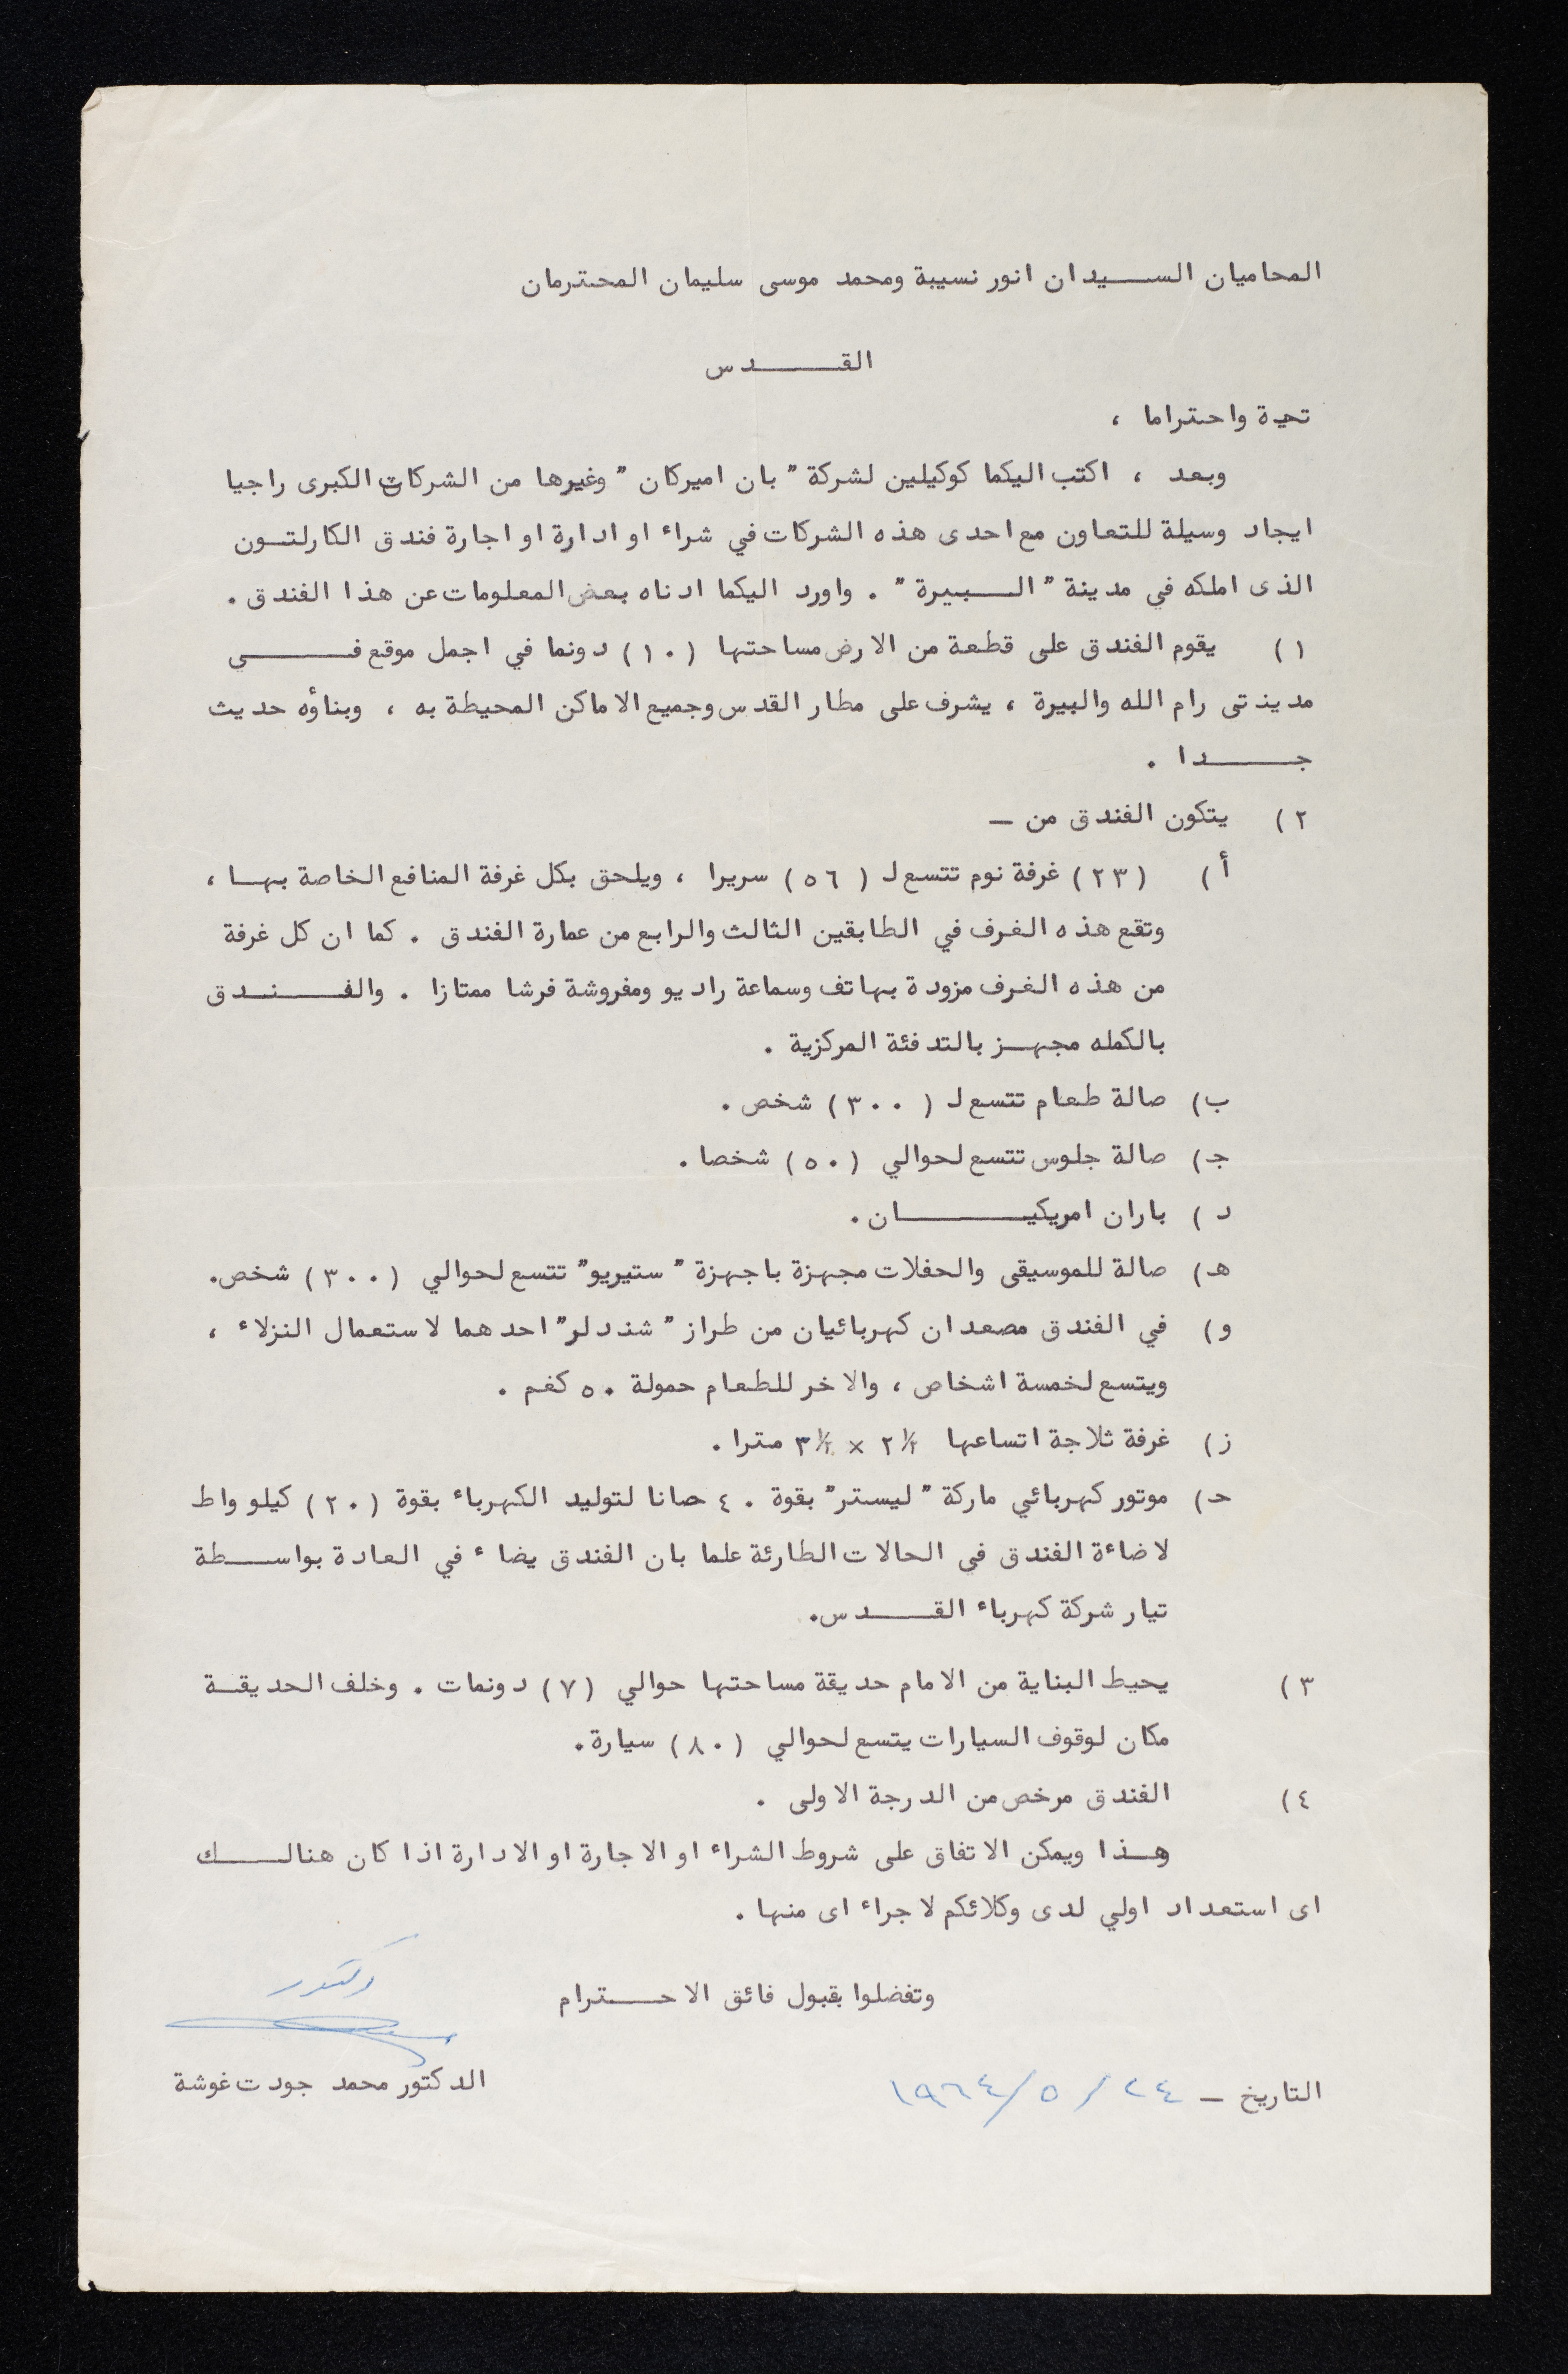 المحاميان السيدان انور نسيبة ومحمد موسى سليمان المحترمان
القدس
تحية واحتراما ،
وبعد ، اكتب اليكما كوكيلين لشركة " بان اميركان " وغيرها من الشركات الكبرى راجيا
ايجاد وسيلة للتعاون مع احدى هذه الشركات في شراء او ادارة او اجارة فندق الكارلتون
الذى املكه في مدينة " البيرة " . واورد اليكما ادناه بعض المعلومات عن هذا الفندق .
١) يقوم الفندق على قطعة من الارض مساحتها (١٠) دونما في اجمل موقع في
مدينتى رام الله والبيرة ، يشرف على مطار القدس وجميع الاماكن المحيطة به ، وبناؤه حديث
جدا .
٢) يتكون الفندق من —
أ) (٢٣) غرفة نوم تتسع ل (٥٦) سريرا ، ويلحق بكل غرفة المنافع الخاصة بها ،
وتقع هذه الغرف في الطابقين الثالث والرابع من عمارة الفندق . كما ان كل غرفة
من هذه الغرف مزودة بهاتف وسماعة راديو ومفروشة فرشا ممتازا . والفندق
بالكمله مجهز بالتدفئة المركزية .
ب) صالة طعام تتسع ل (٣٠٠) شخص .
ج) صالة جلوس تتسع لحوالي (٥٠) شخصا .
د) باران امريكيان .
هـ) صالة للموسيقى والحفلات مجهزة باجهزة " ستيريو " تتسع لحوالي (٣٠٠) شخص .
و) في الفندق مصعدان كهربائيان من طراز " شندلر " احدهما لاستعمال النزلاء ،
ويتسع لخمسة اشخاص ، والاخر للطعام حمولة ٥٠ كغم .
ز) غرفة ثلاجة اتساعها ٢١/٢ × ٣١/٢ مترا .
ح) موتور كهربائي ماركة " ليستر " بقوة ٤٠ حصانا لتوليد الكهرباء بقوة (٢٠) كيلو واط
لاضاءة الفندق في الحالات الطارئة علما بان الفندق يضاء في العادة بواسطة
تيار شركة كهرباء القدس .
٣) يحيط البناية من الامام حديقة مساحتها حوالي (٧) دونمات . وخلف الحديقة
مكان لوقوف السيارات يتسع لحوالي (٨٠) سيارة .
٤) الفندق مرخص من الدرجة الاولى .
هذا ويمكن الاتفاق على شروط الشراء او الاجارة او الادارة اذا كان هنالك
اى استعداد اولي لدى وكلائكم لاجراء اى منها .
وتفضلوا بقبول فائق الاحترام
دكتور
الدكتور محمد جودت غوشة
التاريخ — ٢٤/٥/١٩٦٤